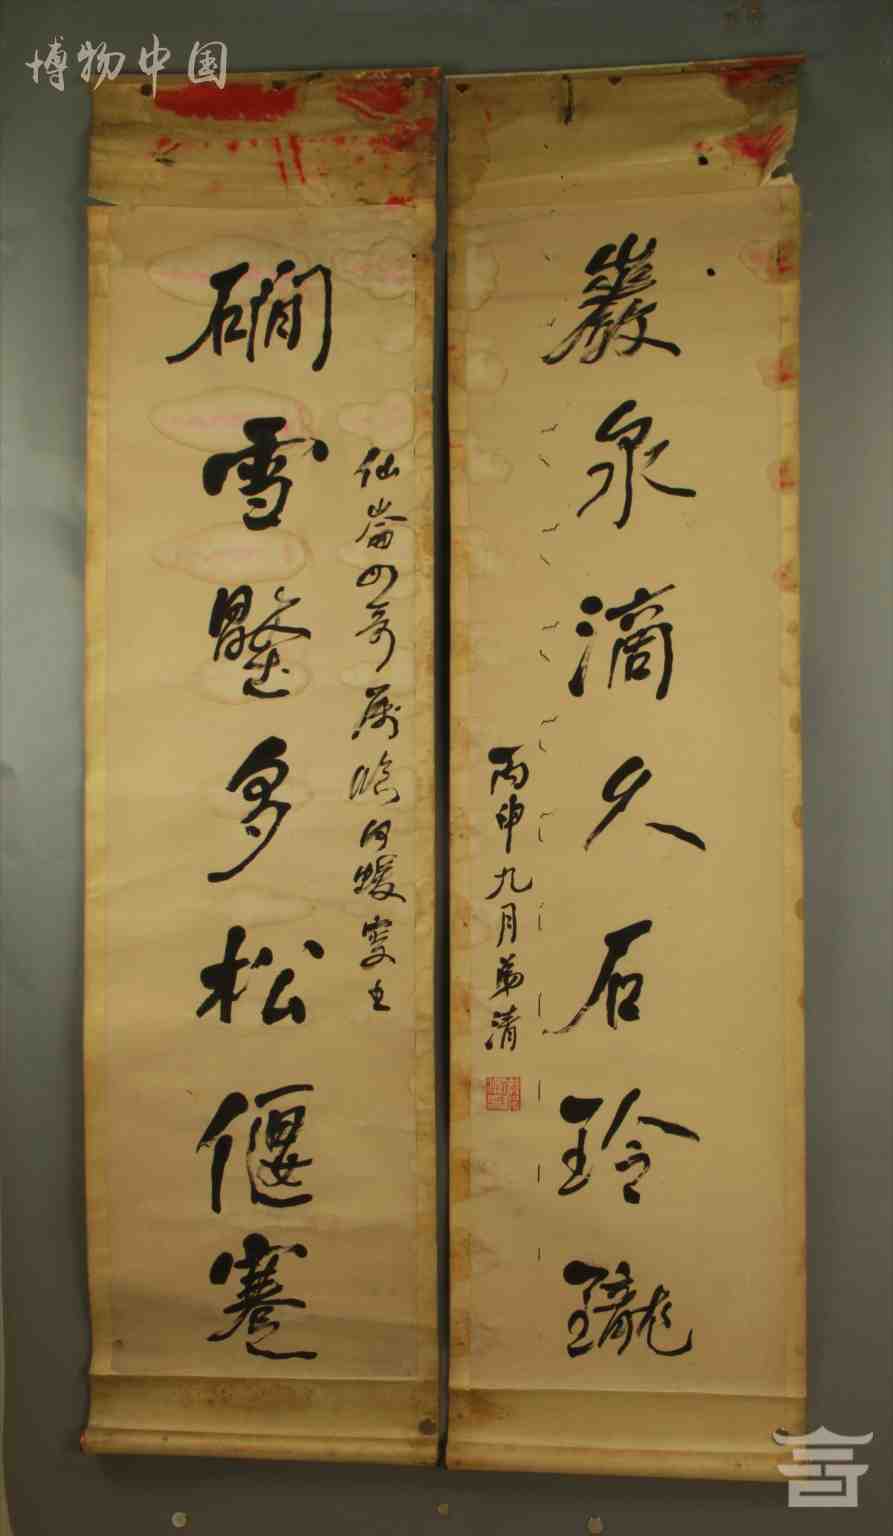 博物中国
巖泉滴久石玲瓏
丙申九月弟清
仙崙四哥屬臨何蝯叟
磵雪壓多松偃蹇